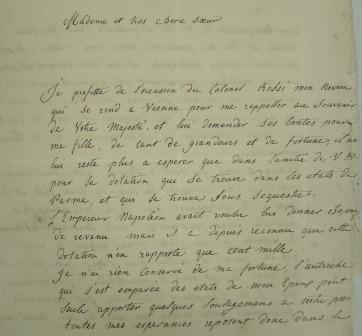 Madame et très chère sœur
Je profitte de l'occasion du Colonel Rossi mon neveu
qui se rend a Vienne pour me rappeller au souvenir
de Votre Majesté, et lui demander ses bontés pour
ma fille, de tant de grandeurs et de fortune, il ne
lui reste plus a esperer que dans l'amitié de V. M.
pour sa dotation qui se trouve dans les etats de
Parme, et qui se trouve sous sequestre.
L'Empereur Napoléon avait voulu lui donner
de revenu, mais il a depuis reconnu que cette
dotation n'en rapporte que cent mille.
Je n'ai rien conservé de ma fortune, l'autriche
qui s'est emparée des etats de mon Epoux peut
seule apporter quelques soulagemens a
toutes mes esperances reposent donc dans le